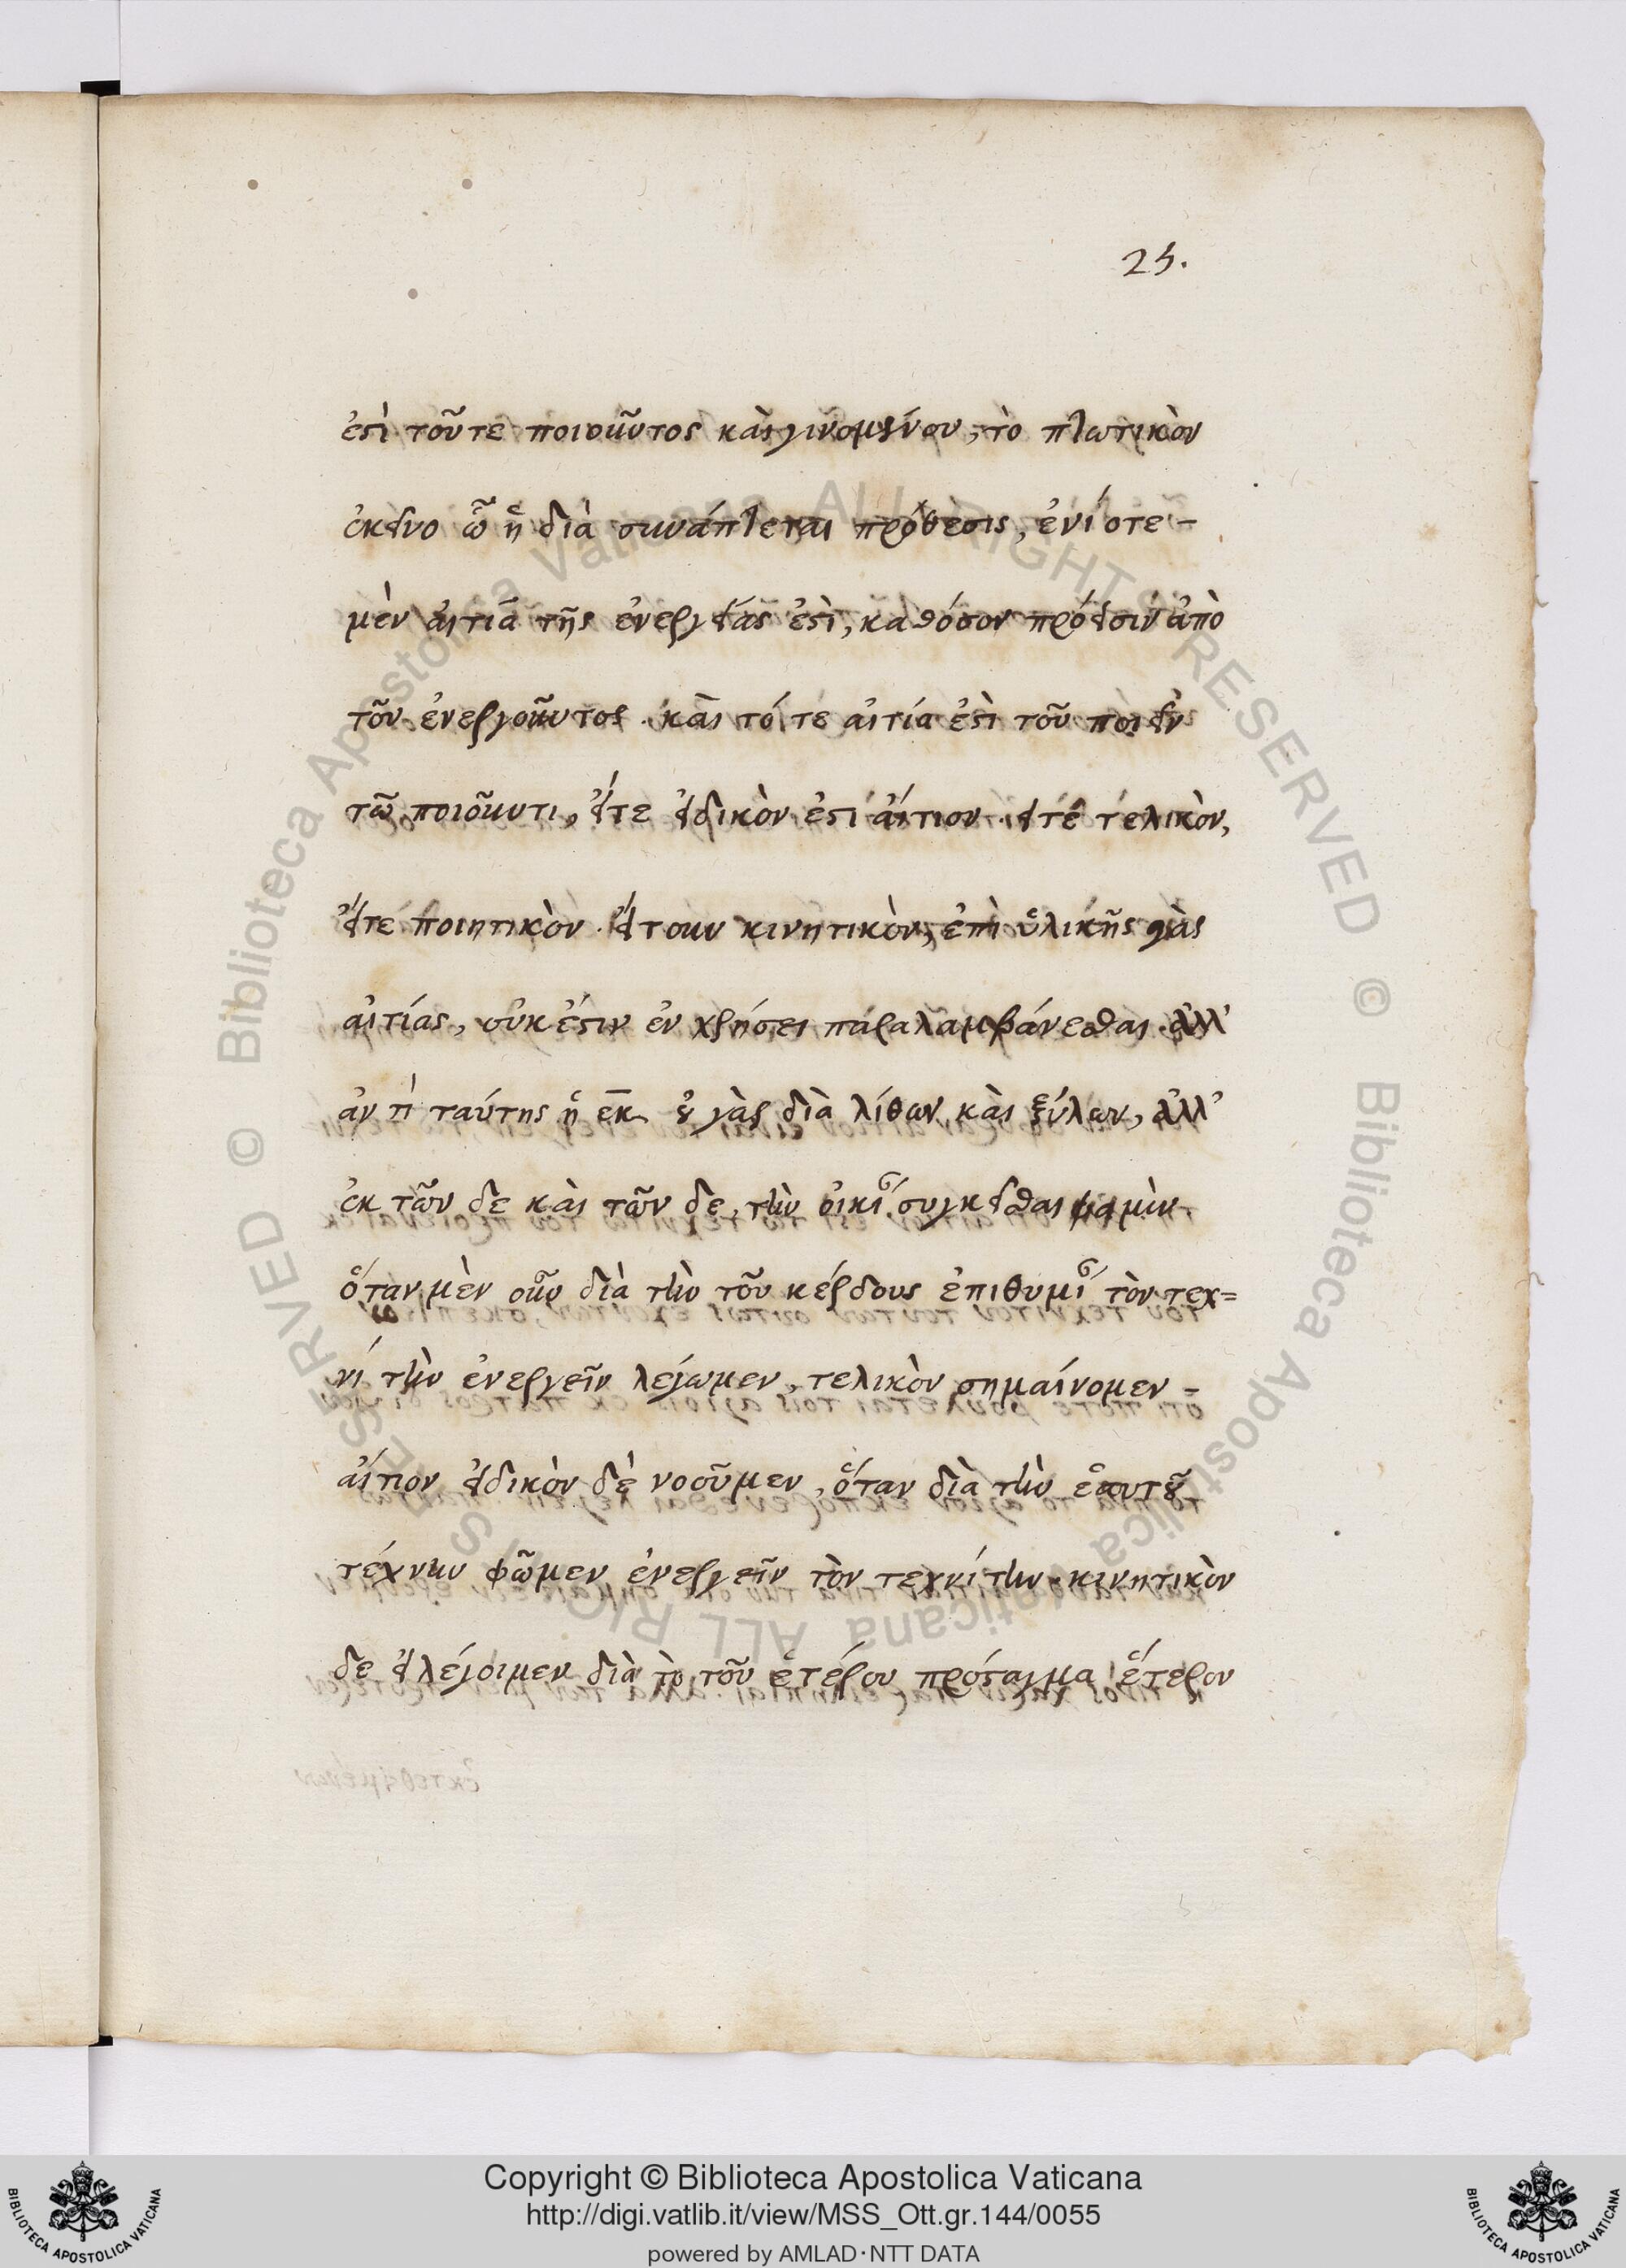 25.
ἐστὶ τοῦτε ποιοῦντος καὶ γινομένου, τὸ πλωτικὸν
ἐκεῖνο ᾧ ἡ διὰ συνάπτεται πρόθεσις, ἐνίοτε-
μὲν αἰτία τῆς ἐνεργείας ἐστὶ, καθόσον πρόεισιν ἀπὸ
τοῦ ἐνεργοῦντος. καὶ τότε αἰτία ἐστὶ τοῦ ποιεῖν
τῷ ποιοῦντι, εἴτε εἰδικὸν ἐστὶ αἴτιον. εἴτε τελικὸν,
εἴτε ποιητικὸν. εἴτουν κινητικὸν, ἐπὶ ὑλικῆς γὰρ
αἰτίας, οὐκ ἔστιν ἐν χρήσει παραλαμβάνεσθαι. ἀλλ'
ἀντὶ ταύτης ἡ ἐκ. οὐ γὰρ διὰ λίθων καὶ ξύλων, ἀλλ'
ἐκ τῶν δε καὶ τῶν δε, τὴν οἰκί συγκεῖσθαι φαμὲν
ὅταν μὲν οὖν διὰ τὴν τοῦ κέρδους ἐπιθυμί τὸν τεχ=
νίτην ἐνεργεῖν λέγωμεν, τελικὸν σημαίνομεν =
αἴτιον εἰδικὸν δὲ νοοῦμεν, ὅταν διὰ τὴν ἑαυτοῦ
τέχνην φῶμεν ἐνεργεῖν τὸν τεχνίτην. κινητικὸν
δε εἰ λέγοιμεν διὰ τὸ τοῦ ἑτέρου πρόσταγμα ἕτερον
© Biblioteca Apostolica Vaticana ALL RIGHTS RESERVED © Biblioteca Apostolica Vaticana ALL RIGHTS RESERVED
Copyright © Biblioteca Apostolica Vaticana
http://digi.vatlib.it/view/MSS_Ott.gr.144/0055
powered by AMLAD·NTT DATA
BIBLIOTECA APOSTOLICA VATICANA
BIBLIOTECA APOSTOLICA VATICANA